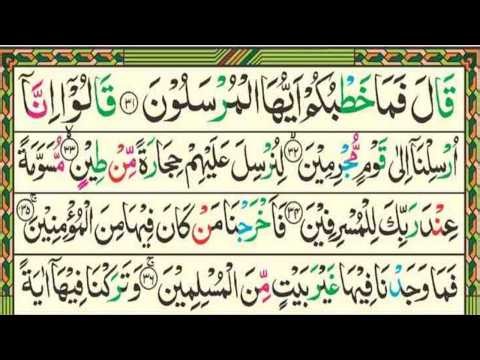 قَالَ فَمَا خَطْبُكُمْ اَيُّهَا الْمُرْسَلُوْنَ ﴿۳۱﴾ قَالُوْۤا اِنَّاۤ
اُرْسِلْنَاۤ اِلٰى قَوْمٍ مُّجْرِمِيْنَ ﴿۳۲﴾ لِنُرْسِلَ عَلَيْهِمْ حِجَارَةً مِّنْ طِيْنٍ ﴿۳۳﴾ مُّسَوَّمَةً
عِنْدَ رَبِّكَ لِلْمُسْرِفِيْنَ ﴿۳۴﴾ فَاَخْرَجْنَا مَنْ كَانَ فِيْهَا مِنَ الْمُؤْمِنِيْنَ ﴿۳۵﴾
فَمَا وَجَدْنَا فِيْهَا غَيْرَ بَيْتٍ مِّنَ الْمُسْلِمِيْنَ ﴿۳۶﴾ وَتَرَكْنَا فِيْهَاۤ اٰيَةً